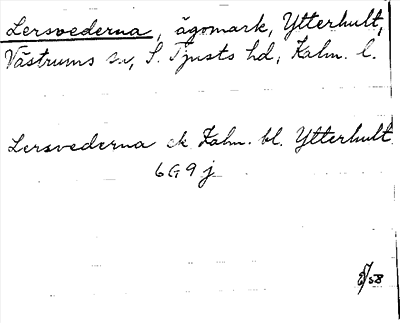 Lersvederna, ägomark, Ytterhult,
Västrums sn, S. Tjusts hd, Kalm. l.
Lersvederna ek Kalm. bl. Ytterhult
6G9j
/58